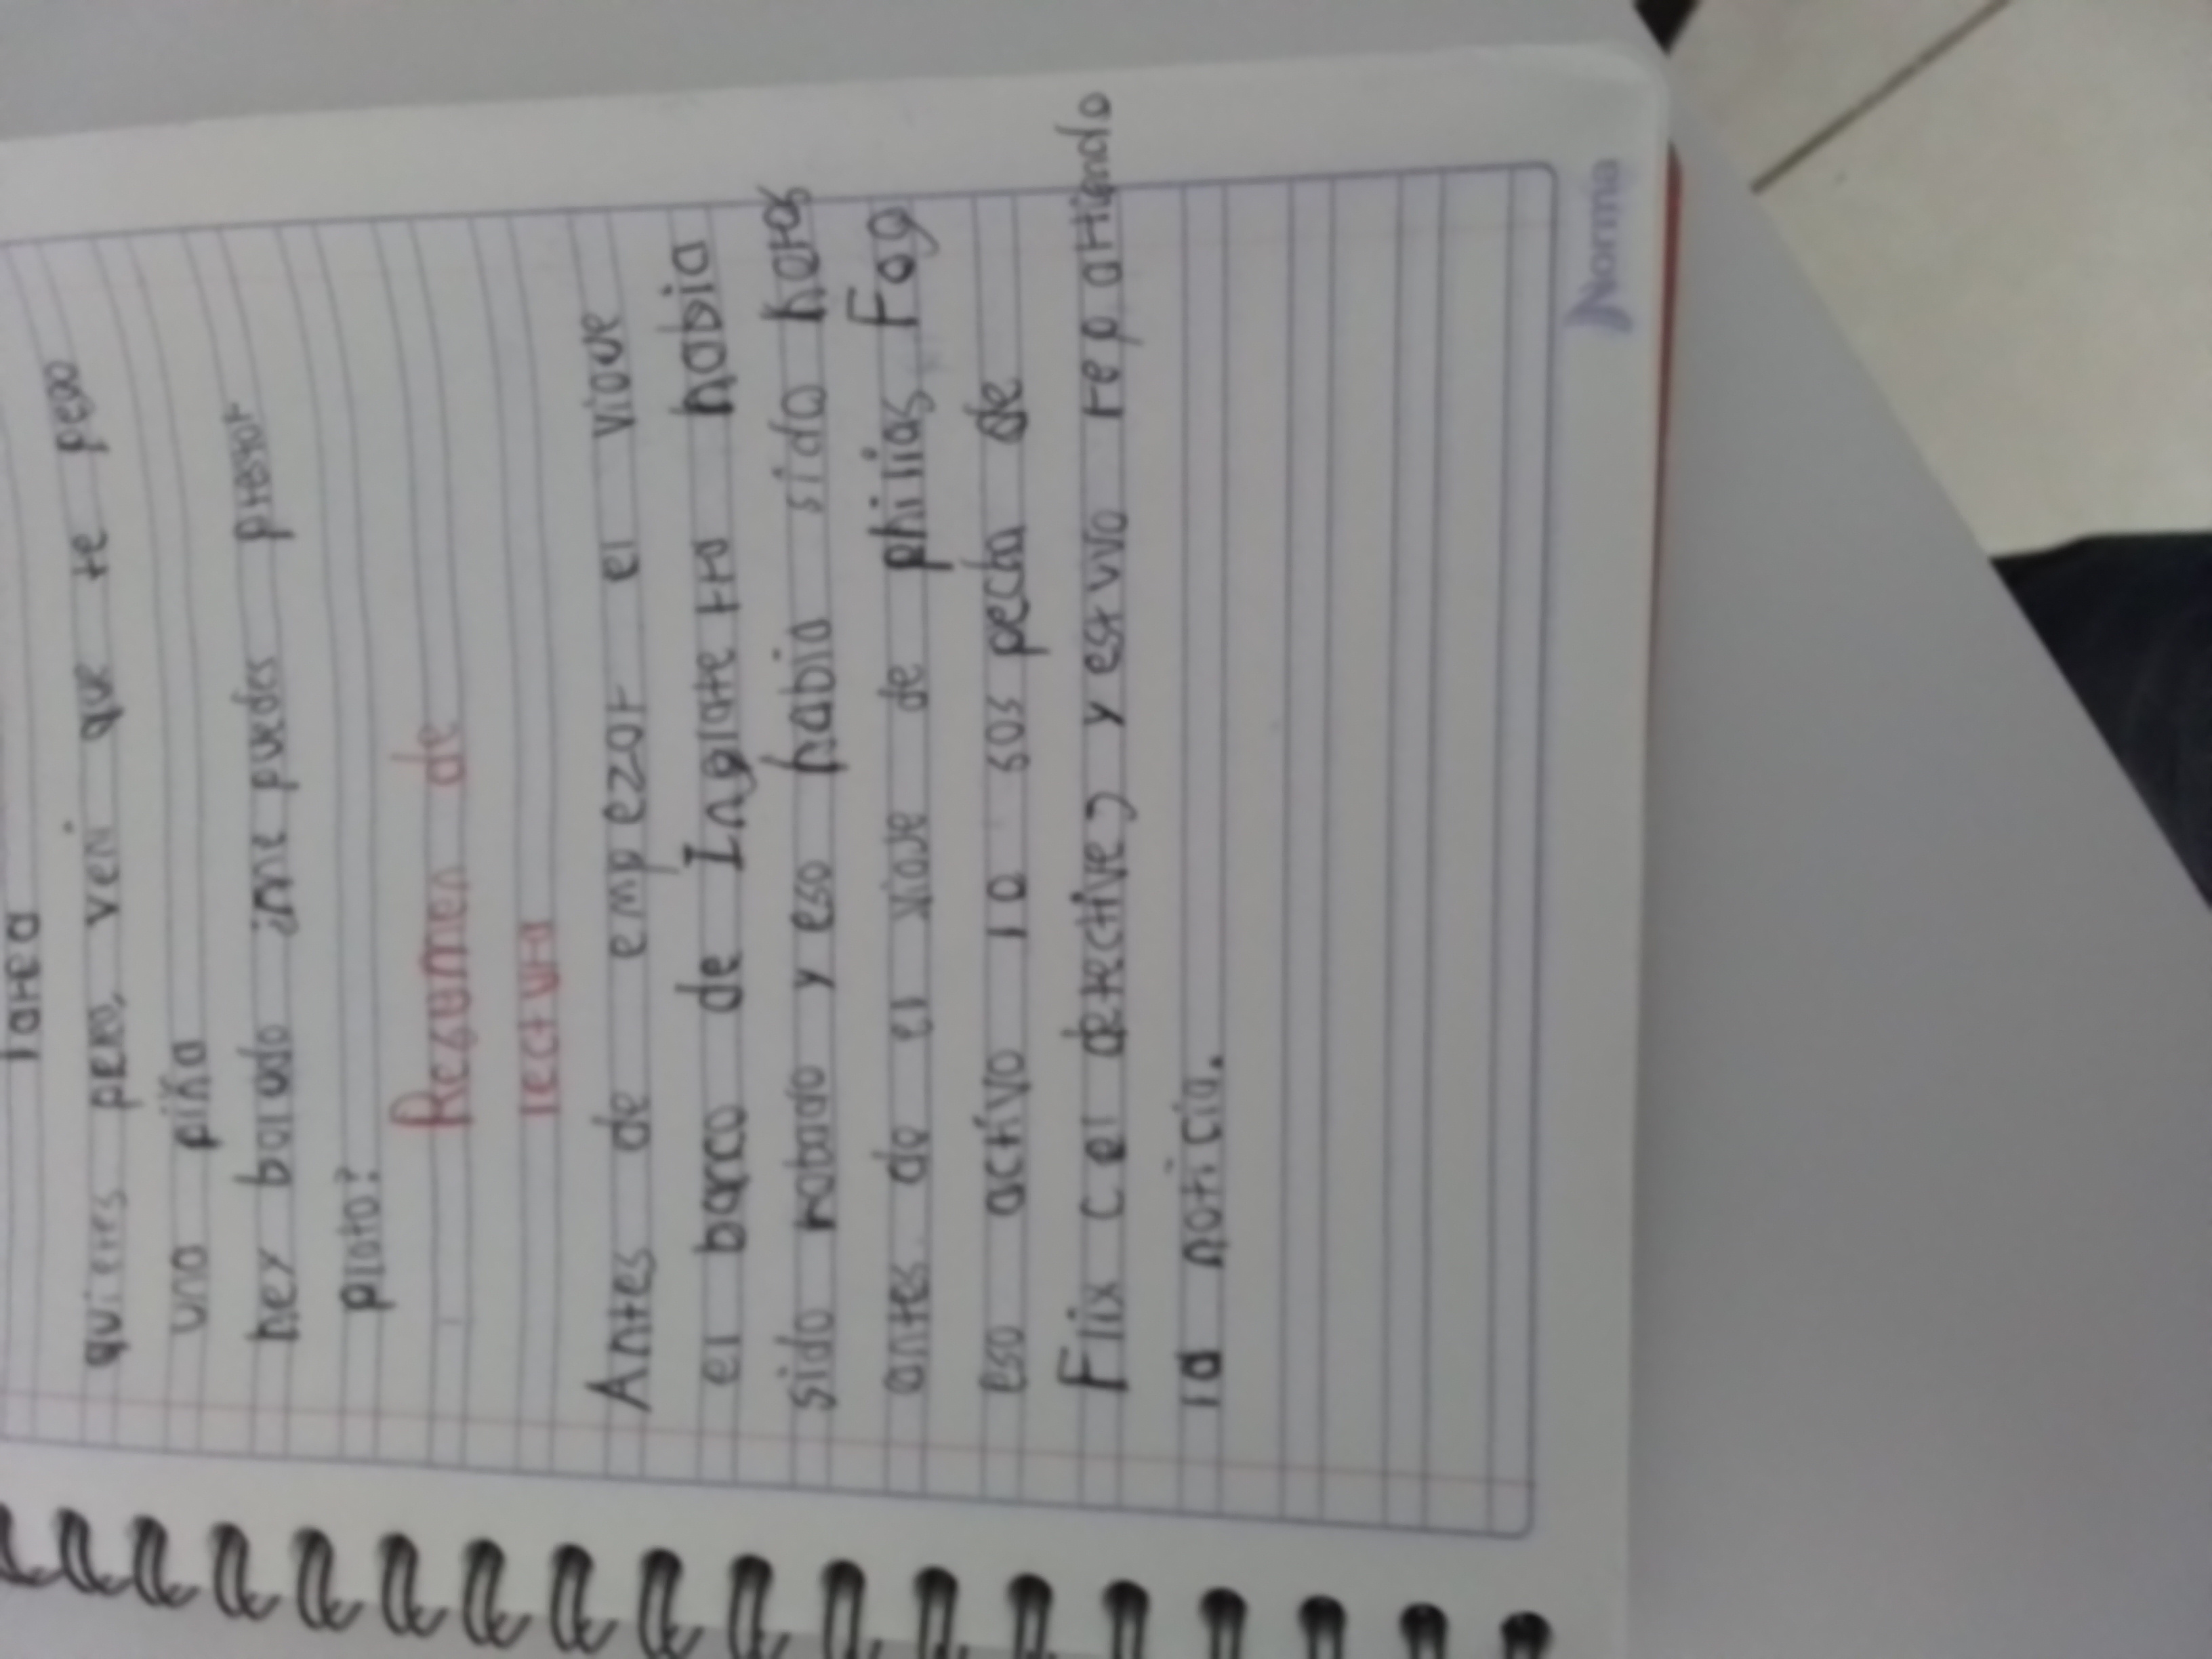 Tarea
quieres pero, veni que te pego
una piña
hey boludo ¿me puedes prestar
plata?
Resumen de
lectura
Antes de empezar el viaje
el barco de Inglaterra habia
sido robado y eso habia sido horas
antes de el viaje de philias Fog
eso activo la sospecha de
Flix C el detective) y estuvo repartiendo
la noticia.
Norma